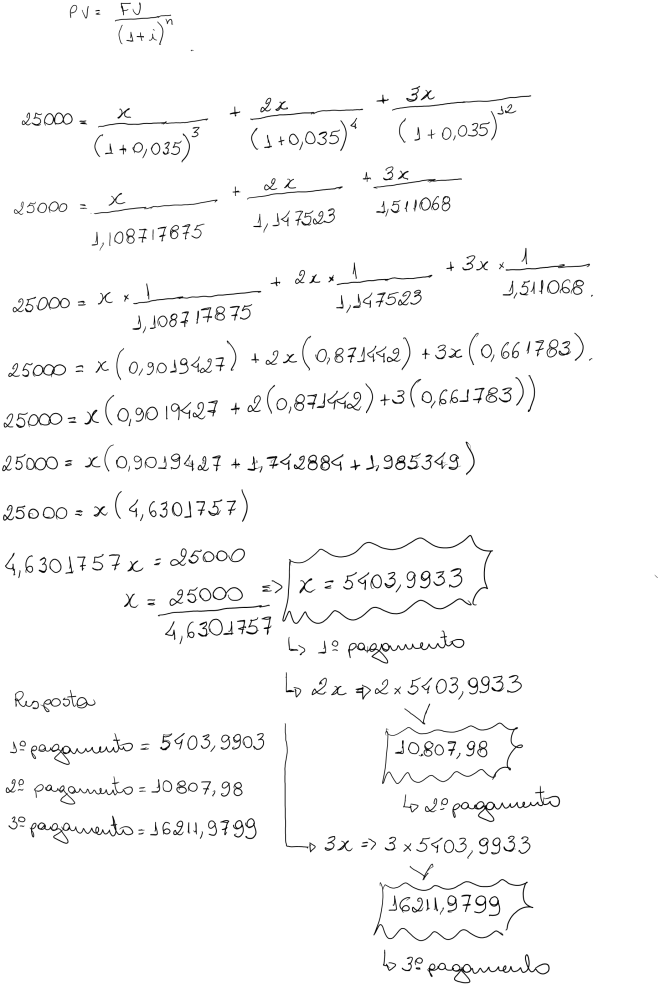 PV = FV / (1+i)^n
25000 = x / (1+0,035)^3 + 2x / (1+0,035)^4 + 3x / (1+0,035)^12
25000 = x / 1,108717875 + 2x / 1,147523 + 3x / 1,511068
25000 = x × 1 / 1,108717875 + 2x × 1 / 1,147523 + 3x × 1 / 1,511068.
25000 = x(0,9019427) + 2x(0,871442) + 3x(0,661783).
25000 = x(0,9019427 + 2(0,871442) + 3(0,661783))
25000 = x(0,9019427 + 1,742884 + 1,985349)
25000 = x(4,6301757)
4,6301757x = 25000
x = 25000 / 4,6301757 => x = 5403,9933
↳ 1º pagamento
↳ 2x => 2 × 5403,9933
10.807,98
↳ 2º pagamento
3x => 3 × 5403,9933
16211,9799
↳ 3º pagamento
Resposta
1º pagamento = 5403,9903
2º pagamento = 10807,98
3º pagamento = 16211,9799